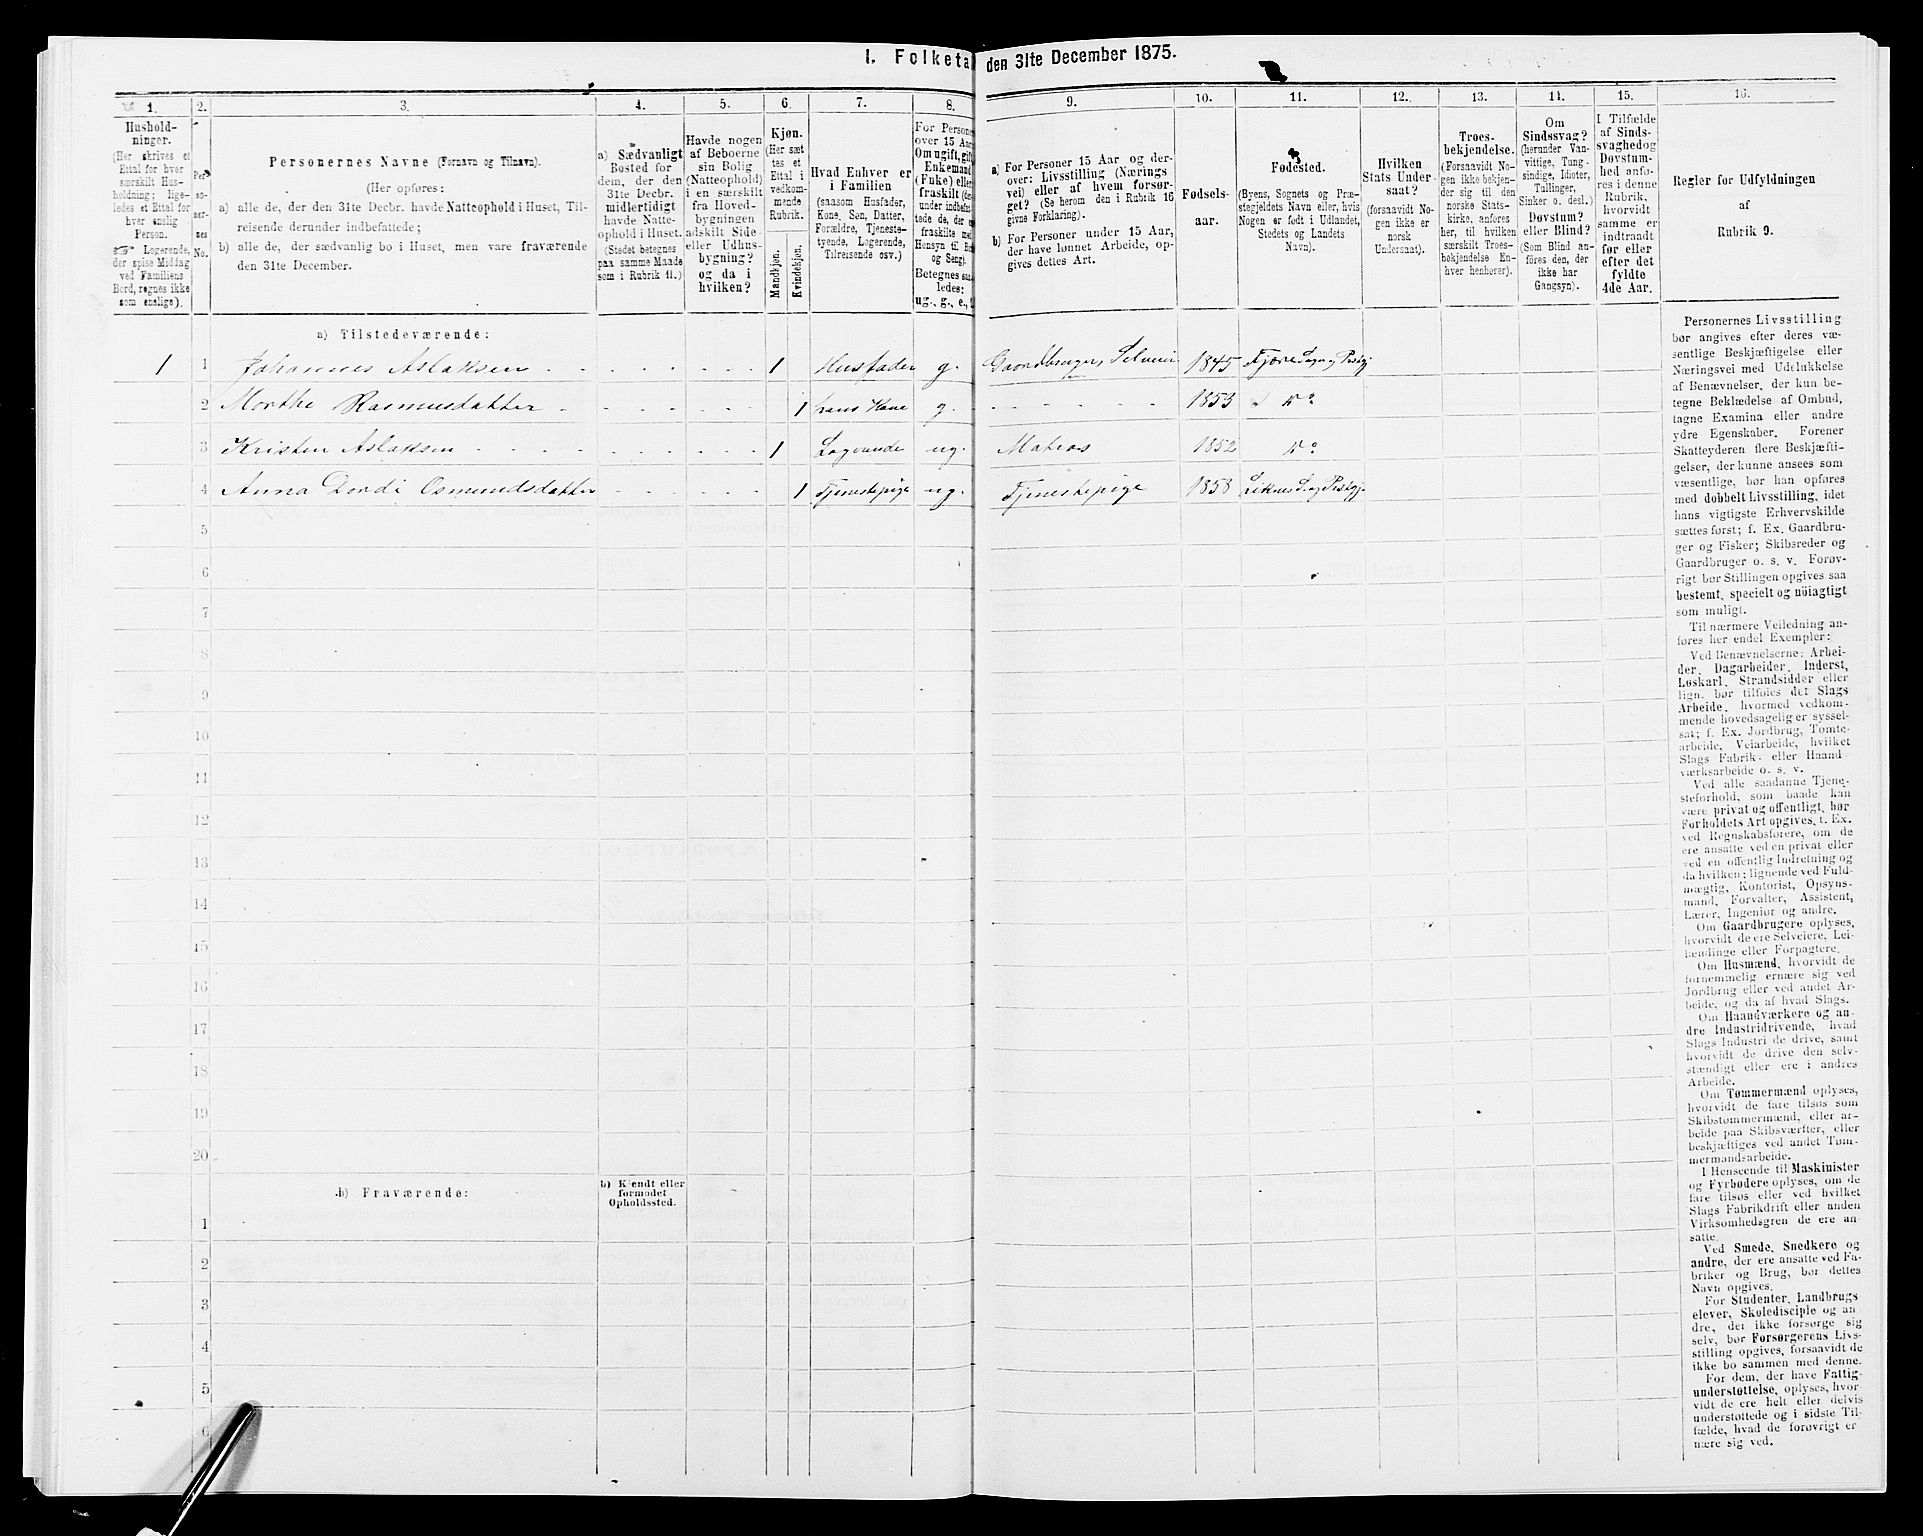 I. Folketa den 31te December 1875.
1. 2. 3. 4. 5. 6. 7. 8. 9. 10. 11. 12. 13. 14. 15. 16.
Hushold-
ninger.
(Her skrives et
Ettal for hver
særskilt Hus-
holdning; lige-
ledes et Ettal for
hver enslig
Person.
☞ Logerende,
der spise Middag
ved Familiens
Bord, regnes ikke
som enslige).
Per-
so-
ner-
nes
No.
Personernes Navne (Fornavn og Tilnavn).
(Her opføres:
a) alle de, der den 31te Decbr. havde Natteophold i Huset, Til-
reisende derunder indbefattede;
b) alle de, der sædvanlig bo i Huset, men vare fraværende
den 31te December.
a) Sædvanligt
Bosted for
dem, der den
31te Decbr.
midlertidigt
havde Natte-
ophold i Huset.
(Stedet betegnes
paa samme Maade
som i Rubrik 11.)
Havde nogen
af Beboerne
sin Bolig
(Natteophold)
i en særskilt
fra Hoved-
bygningen
adskilt Side-
eller Udhus-
bygning?
og da i
hvilken?
Kjøn.
(Her sæt-
tes et
Ettal i
vedkom-
mende
Rubrik.
Mandkjøn.
Kvindekjøn.
Hvad Enhver er
i Familien
(saasom Husfader,
Kone, Søn, Datter,
Forældre, Tjeneste-
tyende, Logerende,
Tilreisende osv.)
For Persone
over 15 Aar
Om ugift, gift
Enkemand
(Enke) elle
fraskilt (de
under indbefat
tede de, der
fraskilte med
Hensyn til Bo
og Seng).
Betegnes saa
ledes:
ug., g., e.,
a) For Personer 15 Aar og der-
over: Livsstilling (Nærings-
vei) eller af hvem forsør-
get? (Se herom den i Rubrik 16
givne Forklaring).
b) For Personer under 15 Aar,
der have lønnet Arbeide, op-
gives dettes Art.
Fødsels-
aar.
Fødested.
(Byens, Sognets og Præ-
stegjeldets Navn eller, hvis
Nogen er født i Udlandet,
Stedets og Landets
Navn).
Hvilken
Stats Under-
saat?
(forsaavidt No-
gen ikke er
norsk
Undersaat).
Troes-
bekjendelse.
(Forsaavidt No-
gen ikke bekjen-
der sig til den
norske Stats-
kirke, anføres
her, til hvilken
særskilt Troes-
bekjendelse En-
hver henhører).
Om
Sindssvag?
(herunder Van-
vittige, Tung-
sindige, Idioter,
Tullinger,
Sinker o. desl.)
Døvstum?
eller Blind?
(Som Blind an-
føres den, der
ikke har
Gangsyn).
I Tilfælde
af Sinds-
svaghed og
Døvstum-
hed anfø-
res i denne
Rubrik,
hvorvidt
samme er
indtraadt
før eller
efter det
fyldte
4de Aar.
Regler for Udfyldningen
af
Rubrik 9.
a) Tilstedeværende:
1 1 Johannes Aslaksen 1 Husfader g. Gaardbruger, Selveier 1845 Fjære Sogn og Prstgj.
2 Marthe Rasmusdatter 1 hans Kone g. 1853 Do
3 Kristen Aslaksen 1 Logerende ug. Matros 1852 Do
4 Anna Dordi Osmundsdatter 1 Tjenestepige ug. Tjenestepige 1858 Liknes S. og Prstgj.
5
6
7
8
9
10
11
12
13
14
15
16
17
18
19
20
b) Fraværende:
b) Kjendt eller
formodet
Opholdssted.
1
2
3
4
5
6
Personernes Livsstilling
bør angives efter deres væ-
sentlige Beskjæftigelse eller
Næringsvei med Udelukkelse
af Benævnelser, der kun be-
tegne Beklædelse af Ombud,
tagne Examina eller andre
ydre Egenskaber. Forener
Skatteyderen flere Beskjæfti-
gelser, der kunne ansees som
væsentlige, bør han opføres
med dobbelt Livsstilling, idet
hans vigtigste Erhvervskilde
sættes først; f. Ex. Gaardbru-
ger og Fisker; Skibsreder og
Gaardbruger o. s. v. Forøv-
rigt bør Stillingen opgives saa
bestemt, specielt og nøiagtigt
som muligt.
Til nærmere Veiledning an-
føres her endel Exempler:
Ved Benævnelserne: Arbei-
der, Dagarbeider, Inderst,
Løskarl, Strandsidder eller
lign. bør tilføies det Slags
Arbeide, hvormed vedkom-
mende hovedsagelig er syssel-
sat; f. Ex. Jordbrug, Tomte-
arbeide, Veiarbeide, hvilket
Slags Fabrik- eller Haand-
værksarbeide o. s. v.
Ved alle saadanne Tjene-
steforhold, som baade kan
være privat og offentligt, bør
Forholdets Art opgives, t. Ex.
ved Regnskabsførere, om de
ere ansatte ved en privat eller
ved en offentlig Indretning og
da hvilken; lignende ved Fuld-
mægtig, Kontorist, Opsyns-
mand, Forvalter, Assistent,
Lærer, Ingeniør og andre.
Om Gaardbrugere oplyses,
hvorvidt de ere Selveiere, Lei-
lændinge eller Forpagtere.
Om Husmænd, hvorvidt de
fornemmelig ernære sig ved
Jordbrug eller ved andet Ar-
beide, og da af hvad Slags.
Om Haandværkere og an-
dre Industridrivende, hvad
Slags Industri de drive, samt
hvorvidt de drive den selv-
stændigt eller ere i andres
Arbeide.
Om Tømmermænd oplyses,
hvorvidt de fare tilsøs som
Skibstømmermænd, eller ar-
beide paa Skibsværfter, eller
beskjæftiges ved andet Tøm-
mermandsarbeide.
I Henseende til Maskinister
og Fyrbødere oplyses, om de
fare tilsøs eller ved hvilket
Slags Fabrikdrift eller anden
Virksomhedsgren de ere an-
satte.
Ved Smede, Snedkere og
andre, der ere ansatte ved Fa-
briker og Brug, bør dettes
Navn opgives.
For Studenter, Landbrugs-
elever, Skoledisciple og an-
dre, der ikke forsørge sig
selv, bør Forsørgerens Livs-
stilling opgives, forsaavidt de
ikke bo sammen med denne.
For dem, der have Fattig-
understøttelse, oplyses, hvor-
vidt de ere helt eller delvis
understøttede og i sidste Til-
fælde, hvad de forøvrigt er-
nære sig ved.